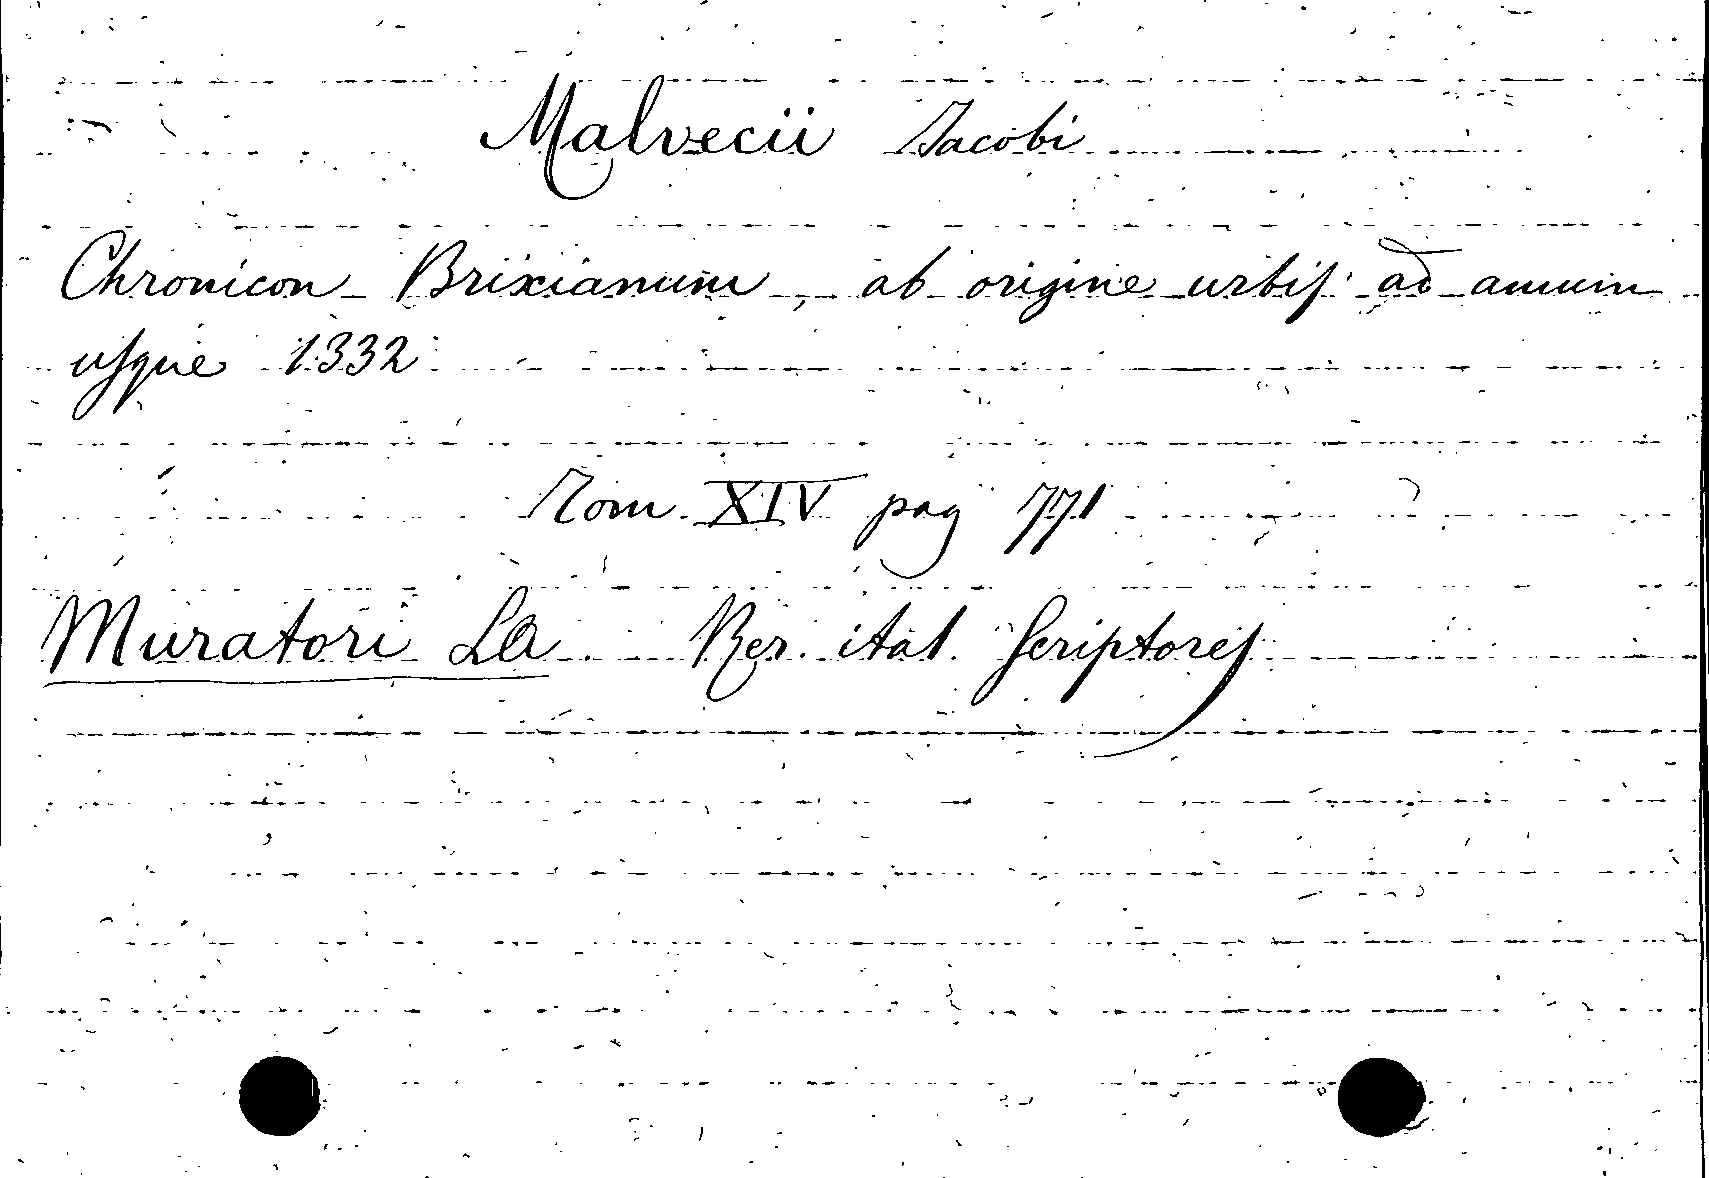 Malvecii Jacobi
Chronicon Brixianum, ab origine urbis ad annum
usque 1332
Tom XIV pag 771
Muratori LA. Rer. ital. Scriptores